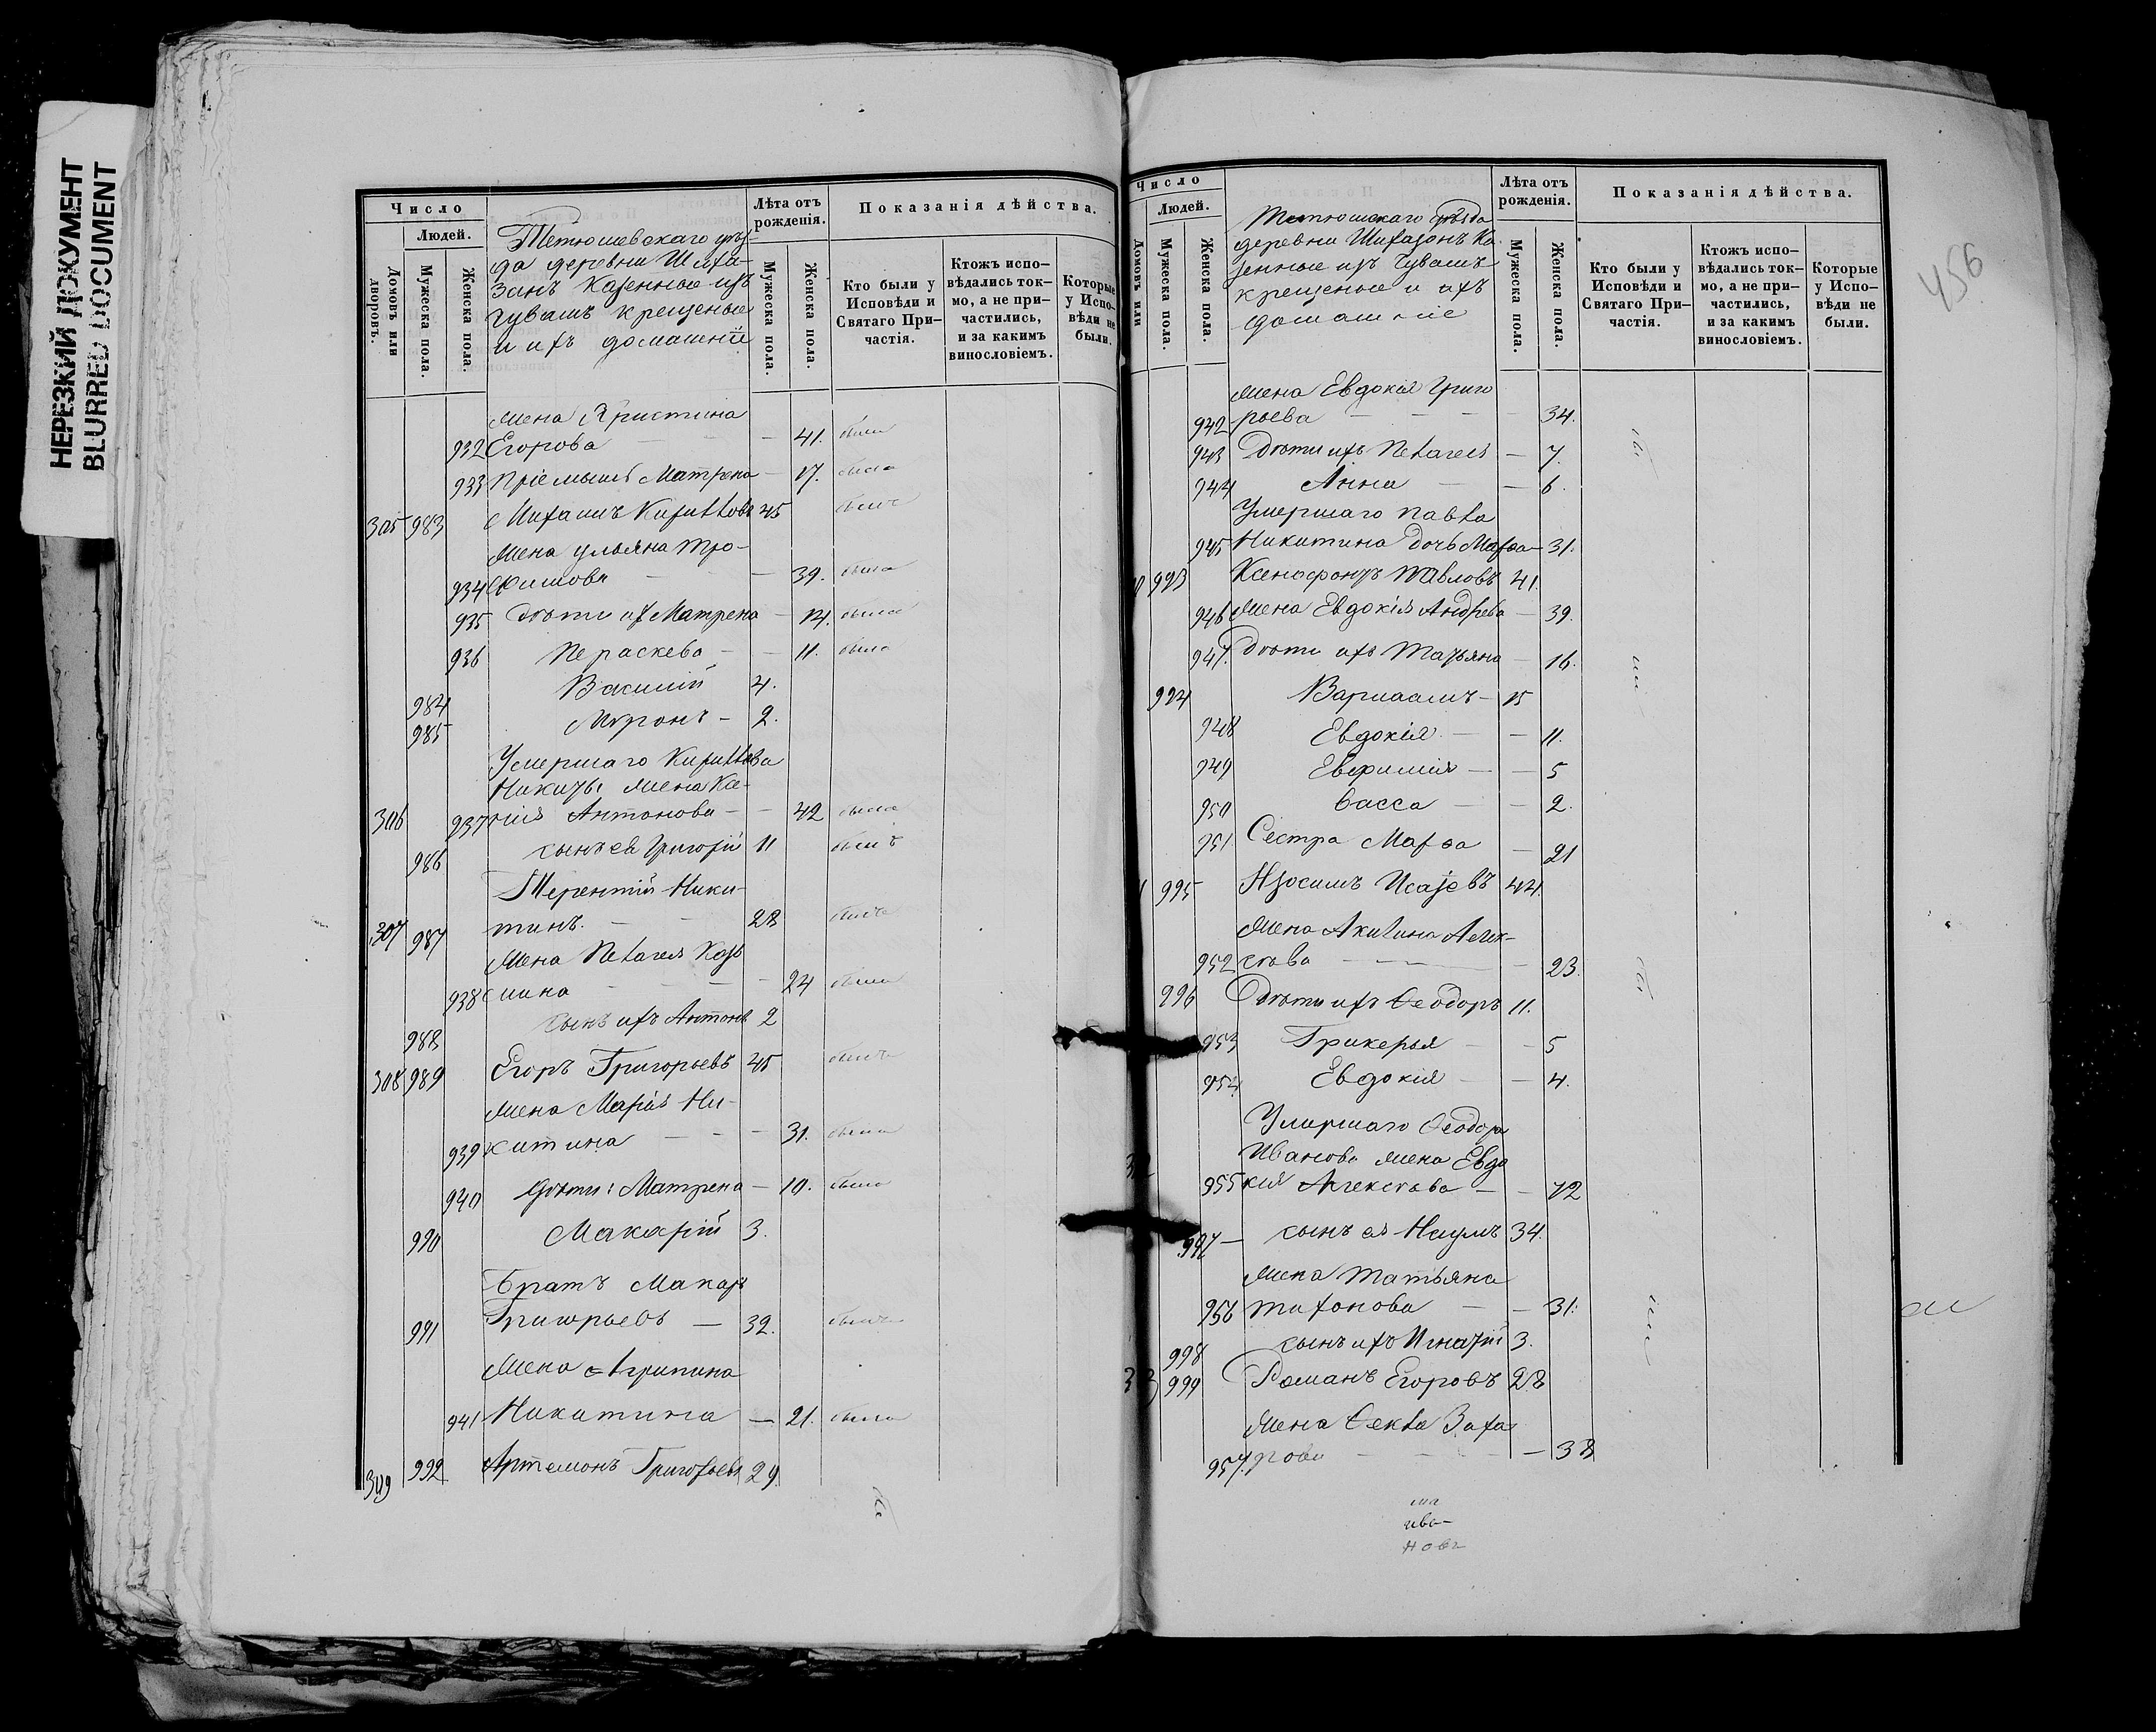 НЕРЕЗКИЙ ДОКУМЕНТ
BLURRED DOCUMENT
Число
Людей.
Домовъ или дворовъ.
Мужеска пола.
Женска пола.
Тетюшевскаго уѣз-
да деревни Шиха-
занъ казенные изъ
чувашъ крещеные
и ихъ домашніе
Лѣта отъ рожденія.
Мужеска пола.
Женска пола.
Показанія дѣйства.
Кто были у Исповѣди и Святаго При-частія.
Ктожъ испо-вѣдались ток-мо, а не при-частились, и за какимъ винословіемъ.
Которые у Испо-вѣди не были.
жена Христина
932 Егорова — 41. была
933 Пріемышъ Матрена — 17. была
305 983 Михаилъ Кириловъ 45 былъ
жена Ульяна Тро-
934 фимова — 39. была
935 Дѣти их Матрена — 14. была
936 Пераскева — 11. была
984 Василій 4.
985 Миронъ — 2.
Умершаго Кирилова
Никиты жена Ка-
306 937 Антонова — 42 была
986 сынъ ея Григорій 11 былъ
Терентій Ники-
307 987 тинъ. — 28 былъ
жена Пелагея Козь
938 мина — 24 была
988 сынъ ихъ Антонъ 2
308 989 Егоръ Григорьевъ 45 былъ
жена Марія Ни-
939 китина — 31. была
940 Дѣти: Матрена — 10. была
990 Макарій 3.
Братъ Макаръ
991 Григорьевъ — 32. былъ
жена Агрипина
941 Никитина — 21. была
309 992 Артемонъ Григорьевъ 29.
456
Число
Людей.
Домовъ или
Мужеска пола.
Женска пола.
Тетюшскаго уѣзда
деревни Шихазонъ Ка-
зенные изъ Чувашъ
крещеные и ихъ
домашніе
Лѣта отъ рожденія.
Мужеска пола.
Женска пола.
Показанія дѣйства.
Кто были у Исповѣди и Святаго При-частія.
Ктожъ испо-вѣдались ток-мо, а не при-частились, и за какимъ винословіемъ.
Которые у Испо-вѣди не были.
жена Евдокія Григо
942 рьева — 34.
943 Дѣти ихъ Пелагея — 7.
944 Анна — 6.
Умершаго Павла
945 Никитина дочь Марѳа — 31.
993 Ксенофонтъ Павловъ 41.
946 жена Евдокія Андрева — 39.
947. Дѣти ихъ Татьяна — 16.
994 Варлаамъ — 15
948 Евдокія — 11.
949 Евфимія — 5
950 Васса — 2.
951 Сестра Марѳа — 21
995 Изосимъ Исаевъ 44.
жена Акилина Алек-
952 сѣева — 23.
996 Дѣти ихъ Ѳеодоръ 11.
953 Гликерья — 5
954 Евдокія — 4.
Умершаго Ѳеодора
Иванова жена Евдо
955 кія Алексѣева — 72
997 — сынъ ея Наумъ 34.
жена Татьяна
956 Тихонова — 31.
998 сынъ ихъ Игнатій 3.
999 Романъ Егоровъ 28
жена Ѳекла Заха
957. рова — 38
ива-
новъ